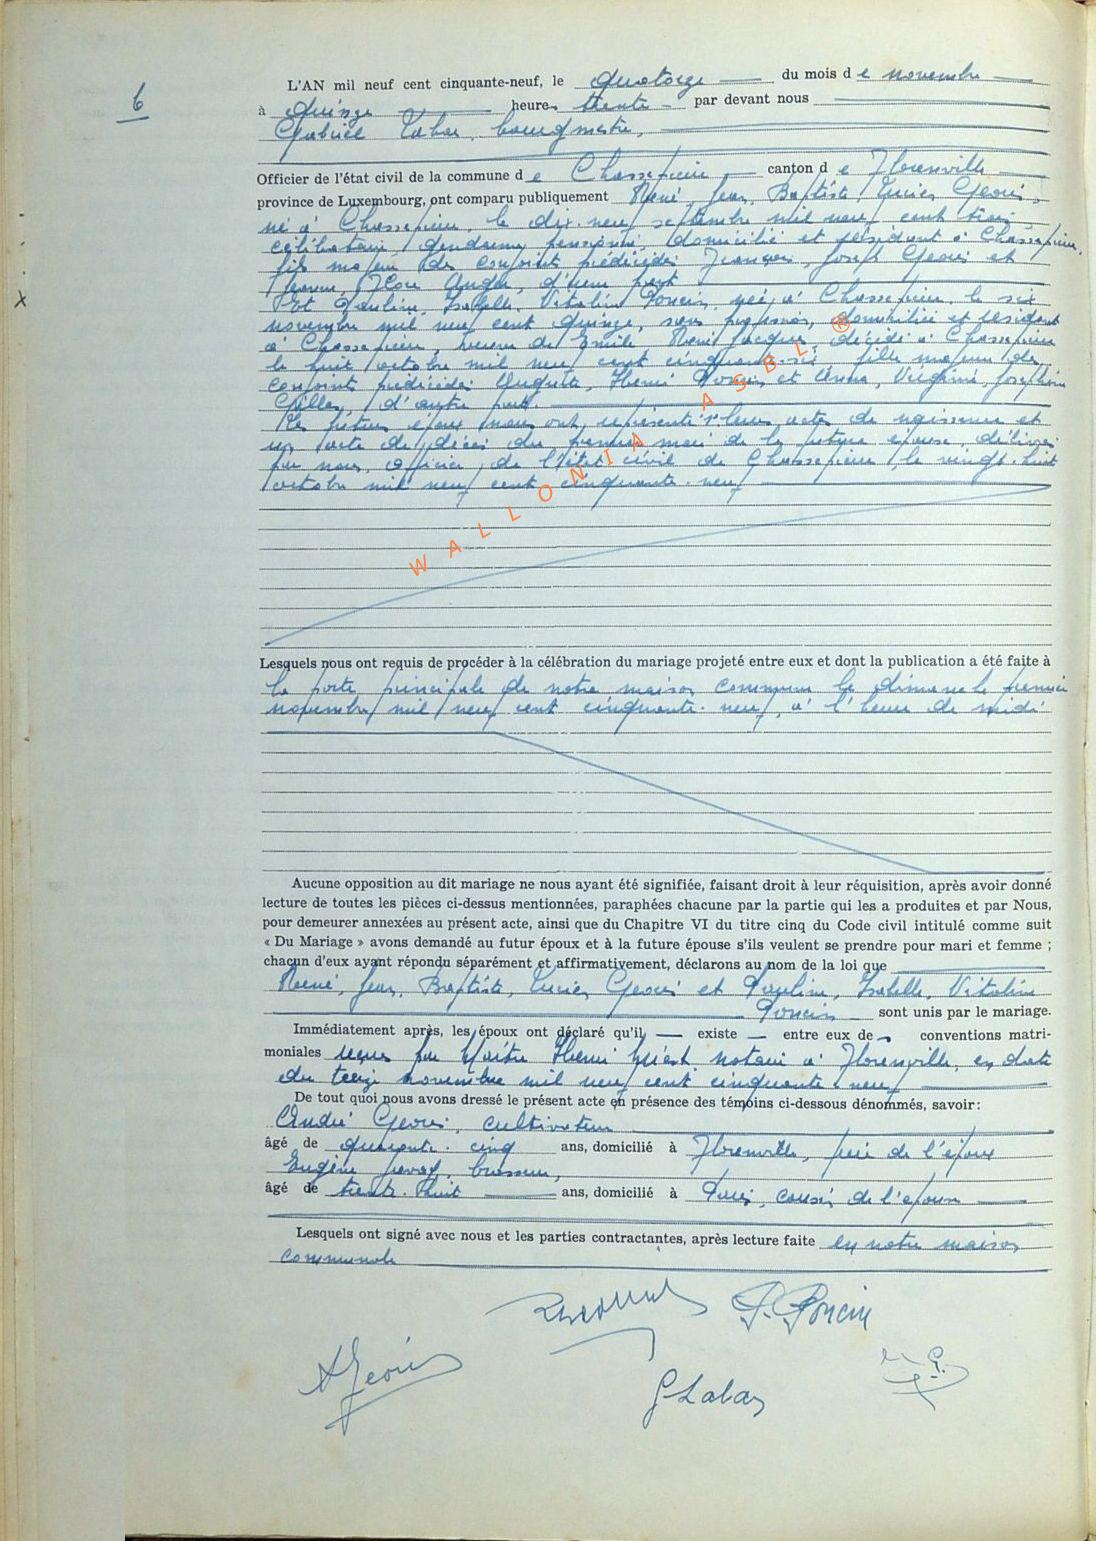 6
L'AN mil neuf cent cinquante-neuf, le quatorze du mois de novembre
à quinze heures trente par devant nous
Gabriel Labar, bourgmestre,
Officier de l'état civil de la commune de Chassepierre canton de Florenville
province de Luxembourg, ont comparu publiquement René, Jean, Baptiste, Lucien Georis,
né à Chassepierre, le dix-neuf septembre mil neuf cent trois,
célibataire, gendarme pensionné, domicilié et résidant à Chassepierre,
fils majeur des conjoints prédécédés François, Joseph Georis et
d'une part
Et Pauline, Isabelle, Vitaline Poncin, née à Chassepierre, le six
novembre mil neuf cent quinze, sans profession, domiciliée et résidant
à Chassepierre, veuve de Emile René Jacques, décédé à Chassepierre
le huit octobre mil neuf cent cinquante-six fille majeure des
conjoints prédécédés Auguste, Henri Poncin et Anna, Virginie, Joséphine
Gilles, d'autre part.
Les futurs époux nous ont représenté leurs actes de naissance et
un acte de décès du premier mari de la future épouse, délivrés
par nous, officier de l'état civil de Chassepierre, le vingt-huit
octobre mil neuf cent cinquante-neuf
WALLONIA ASBL ®
Lesquels nous ont requis de procéder à la célébration du mariage projeté entre eux et dont la publication a été faite à
la porte principale de notre maison commune le dimanche premier
novembre mil neuf cent cinquante-neuf, à l'heure de midi
Aucune opposition au dit mariage ne nous ayant été signifiée, faisant droit à leur réquisition, après avoir donné
lecture de toutes les pièces ci-dessus mentionnées, paraphées chacune par la partie qui les a produites et par Nous,
pour demeurer annexées au présent acte, ainsi que du Chapitre VI du titre cinq du Code civil intitulé comme suit
« Du Mariage » avons demandé au futur époux et à la future épouse s'ils veulent se prendre pour mari et femme ;
chacun d'eux ayant répondu séparément et affirmativement, déclarons au nom de la loi que
René, Jean, Baptiste, Lucien Georis et Pauline, Isabelle, Vitaline
Poncin sont unis par le mariage.
Immédiatement après, les époux ont déclaré qu'il existe entre eux des conventions matri-
moniales reçues par Maître Henri notaire à Florenville, en date
du treize novembre mil neuf cent cinquante-neuf
De tout quoi nous avons dressé le présent acte en présence des témoins ci-dessous dénommés, savoir :
André Georis, cultivateur
âgé de quarante-cinq ans, domicilié à Florenville, frère de l'époux
Eugène brasseur,
âgé de trente-huit ans, domicilié à Paris, cousin de l'épouse
Lesquels ont signé avec nous et les parties contractantes, après lecture faite en notre maison
communale
P. Poncin
A Georis
G Labar